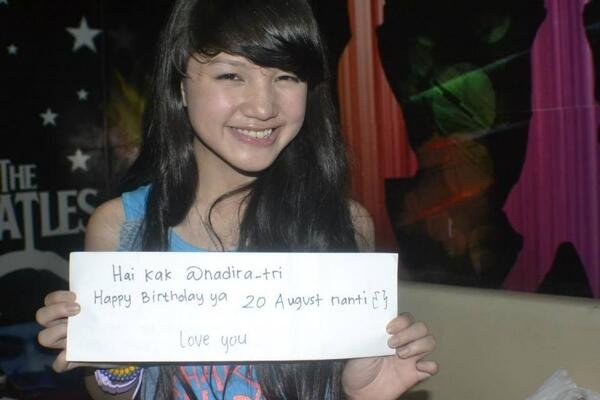 THE
BEATLES
Hai kak @nadira_tri
Happy Birthday ya 20 August nanti {}
love you